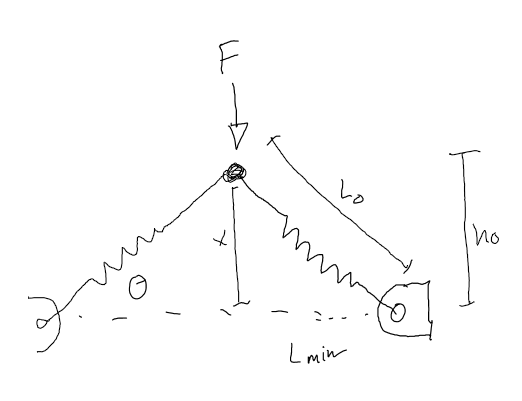 F
L₀
h₀
x
θ
Lmin